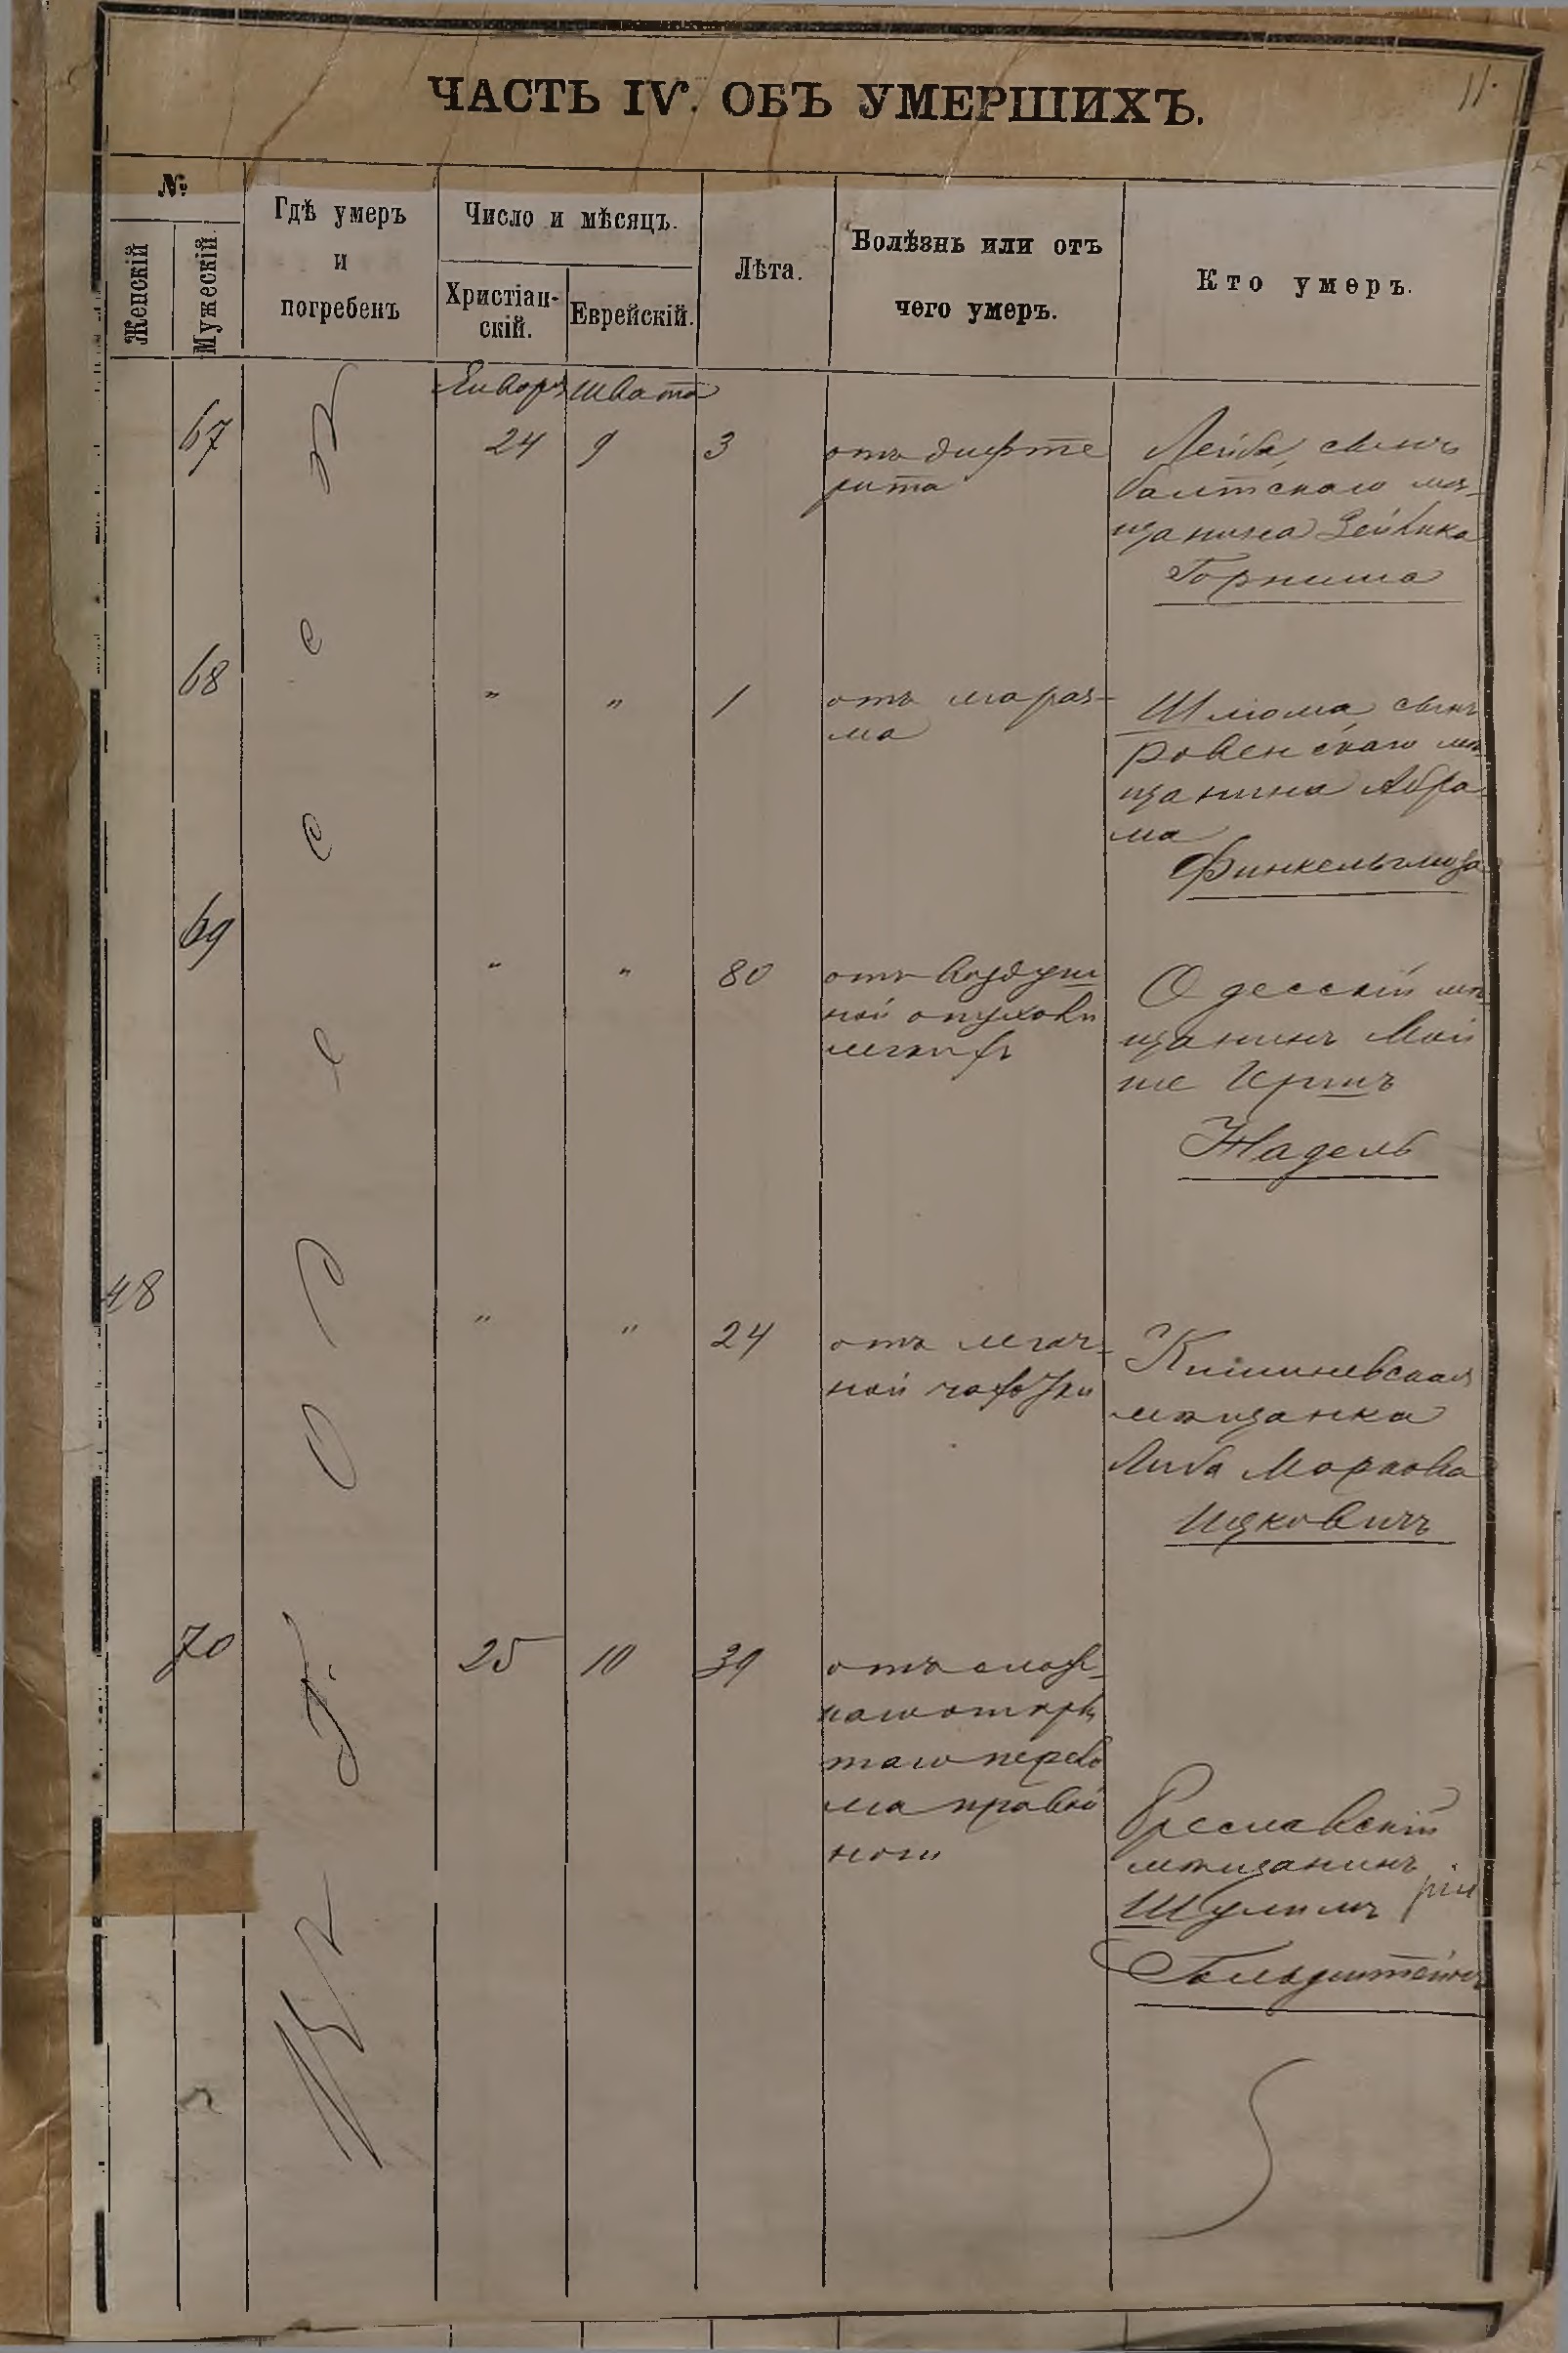 11.
ЧАСТЬ IV. ОБЪ УМЕРШИХЪ.
№
Женскій
Мужескій.
Гдѣ умеръ
и
погребенъ
Число и мѣсяцъ.
Христіан-
скій.
Еврейскій.
Лѣта.
Болѣзнь или отъ
чего умеръ.
Кто умеръ.
Января Швата
67 24 9 3
отъ дифте
рита
Лейба, сынъ
балтскаго мѣ-
щанина Зейлика
Горниша
68 " " 1
отъ мараз-
ма
Шлиома, сынъ
Ровенскаго мѣ
щанина Абра
ма
Финкельглуза
69 " " 80
отъ воздуш
ной опухоли
легкихъ
Одесскій мѣ
щанинъ Мой
ше Гершъ
Надель
48 " " 24
отъ легоч-
ной чахотки
Кишиневская
мѣщанка
Либа Маркова
Ицковичъ
70 25 10 39
отъ слож-
наго откры
таго перело
ма правой
ноги
Бреславскій
мѣщанинъ
Шулимъ
Гольдштейнъ
г. Одессѣ